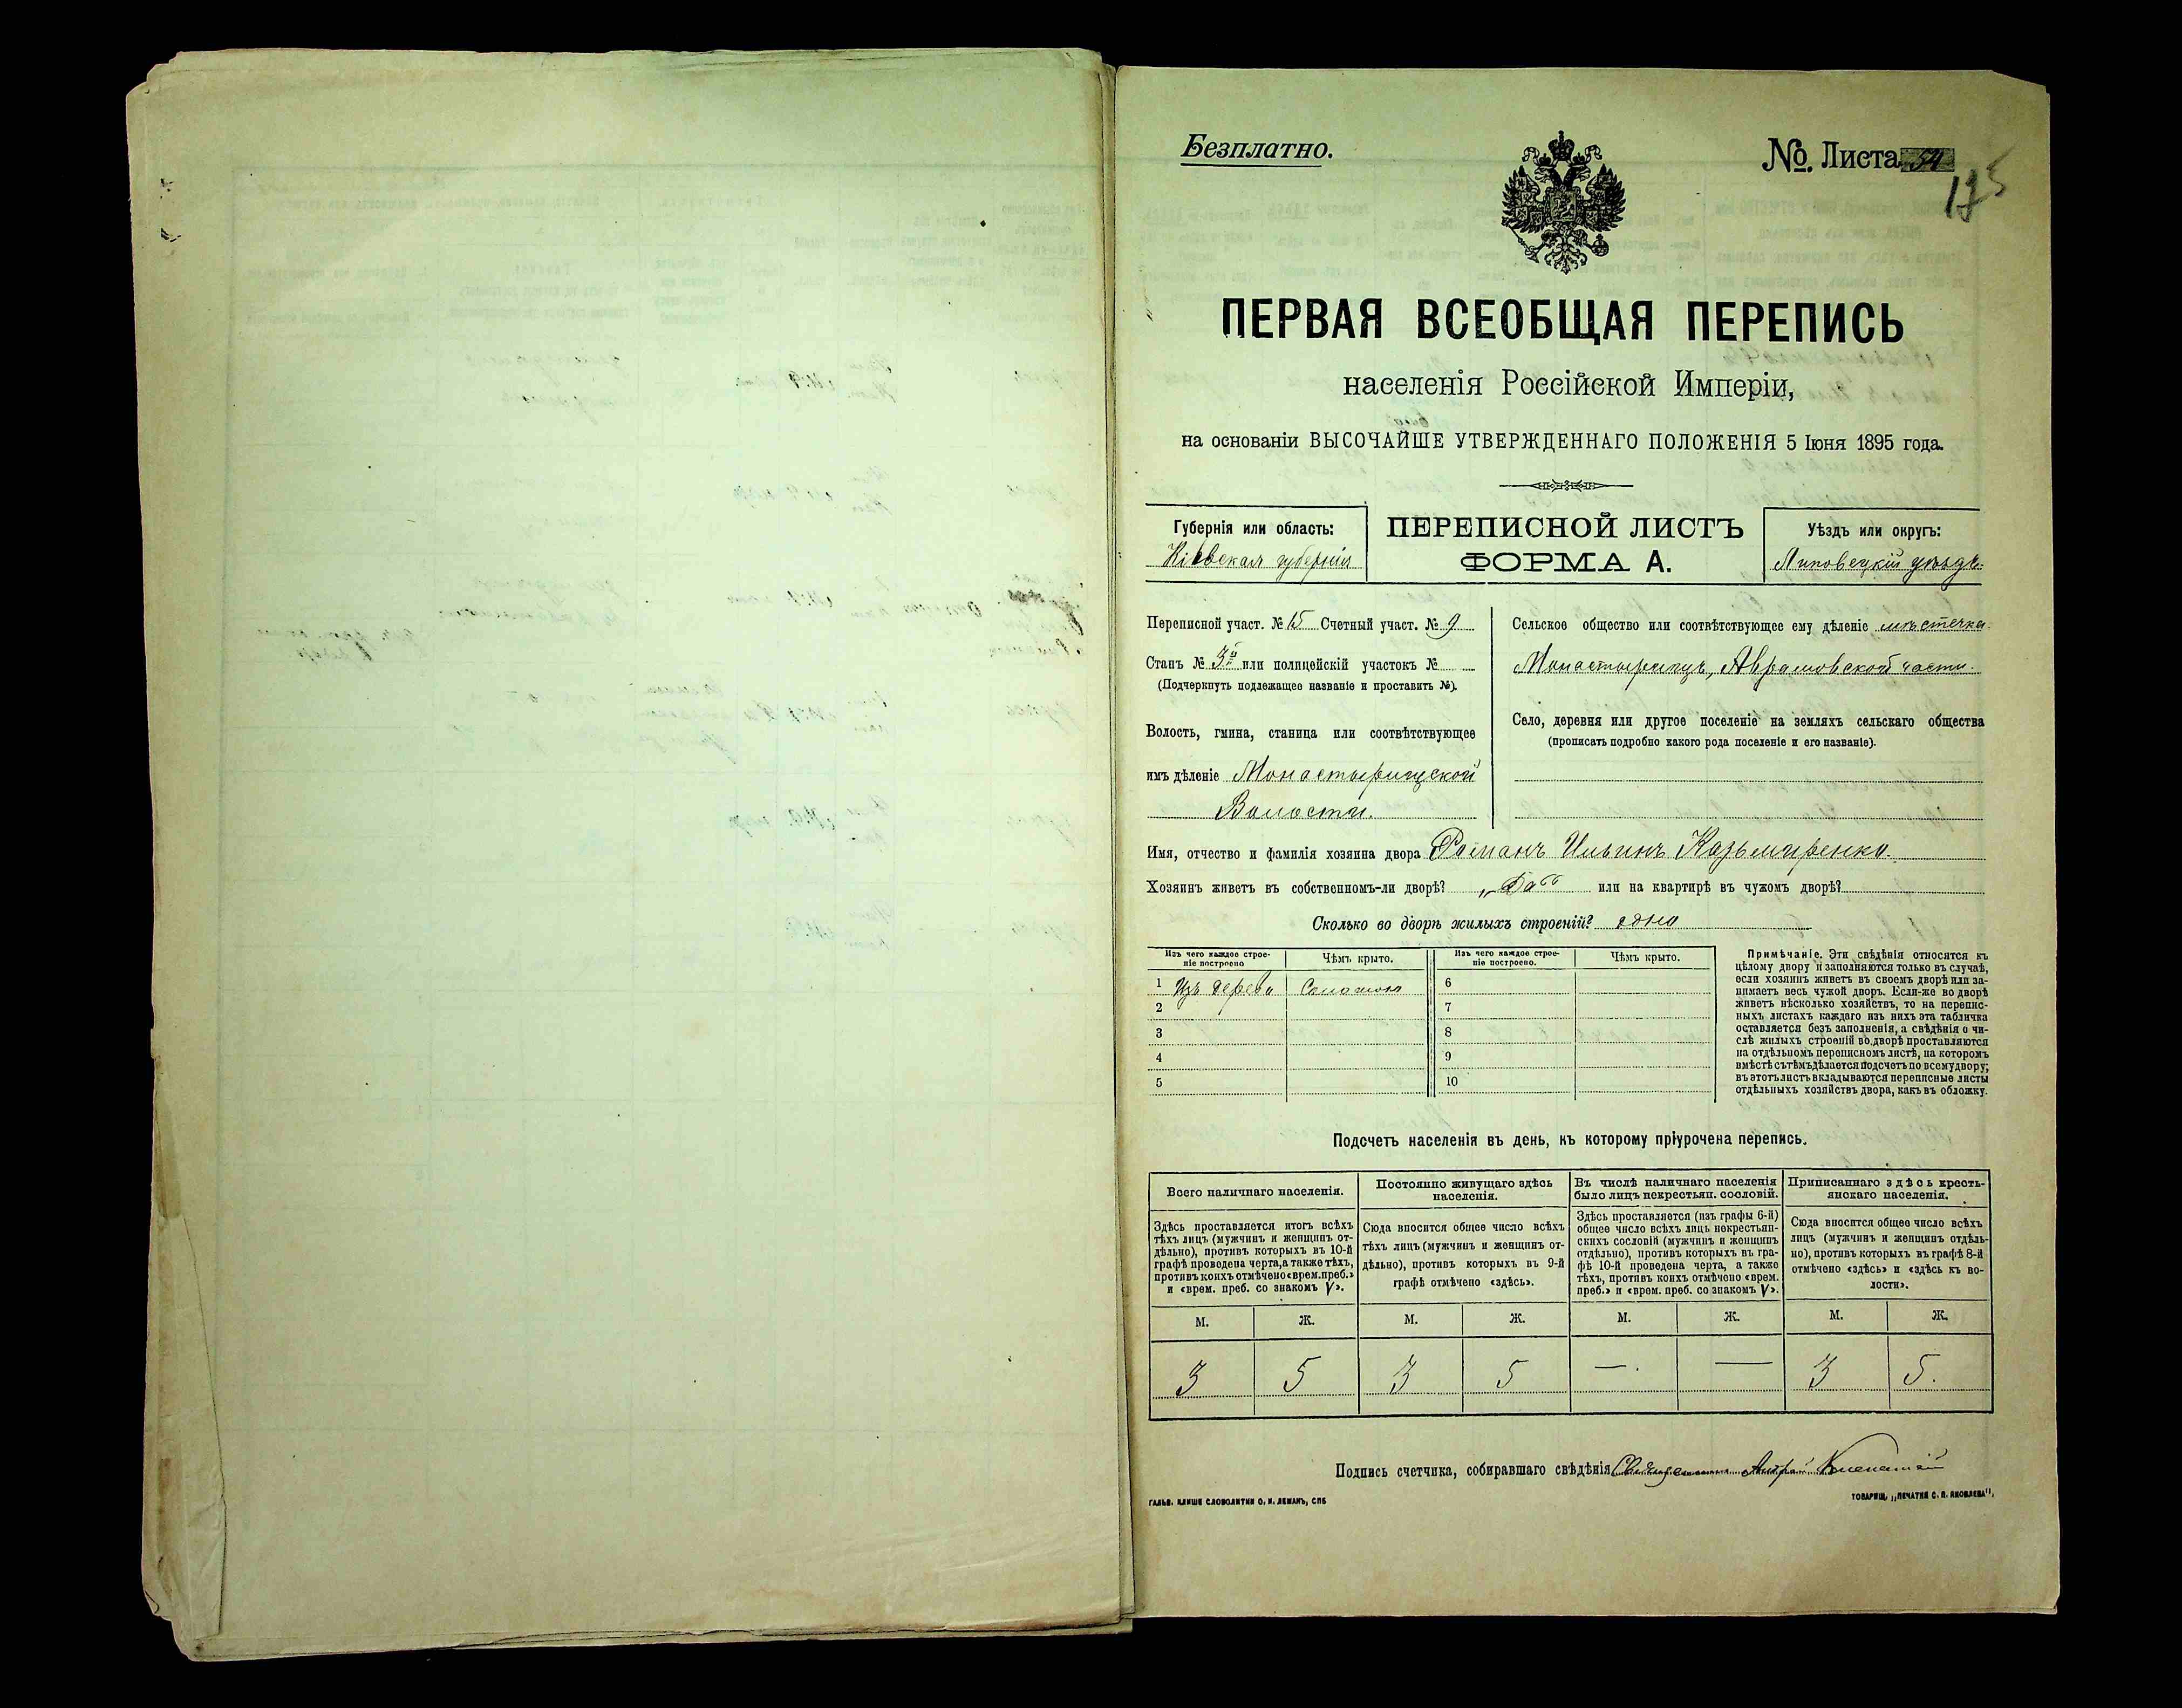 Безплатно.
№ Листа 54
175
ПЕРВАЯ ВСЕОБЩАЯ ПЕРЕПИСЬ
населенія Россійской Имперіи,
на основаніи ВЫСОЧАЙШЕ УТВЕРЖДЕННАГО ПОЛОЖЕНІЯ 5 Іюня 1895 года.
Губернія или область:
Кіевская губернія
ПЕРЕПИСНОЙ ЛИСТЪ
ФОРМА А.
Уѣздъ или округъ:
Липовецкій уѣздъ
Переписной участ. № 15 Счетный участ. № 9
Станъ № 3й или полицейскій участокъ №
(Подчеркнуть подлежащее названіе и проставить №).
Волость, гмина, станица или соотвѣтствующее
имъ дѣленіе Монастырищской
Волости.
Сельское общество или соотвѣтствующее ему дѣленіе мѣстечка
Монастырищъ, Аврамовской части.
Село, деревня или другое поселеніе на земляхъ сельскаго общества
(прописать подробно какого рода поселеніе и его названіе).
Имя, отчество и фамилія хозяина двора Романъ Ильинъ Казьмиренко.
Хозяинъ живетъ въ собственномъ-ли дворѣ? „Да“ или на квартирѣ въ чужомъ дворѣ?
Сколько во дворѣ жилыхъ строеній? одно
Изъ чего каждое строе-
ніе построено
Чѣмъ крыто.
Изъ чего каждое строе-
ніе построено.
Чѣмъ крыто.
1 Изъ дерева Соломою 6
2 7
3 8
4 9
5 10
Примѣчаніе. Эти свѣдѣнія относятся къ
цѣлому двору и заполняются только въ случаѣ,
если хозяинъ живетъ въ своемъ дворѣ или за-
нимаетъ весь чужой дворъ. Если-же во дворѣ
живетъ нѣсколько хозяйствъ, то на перепис-
ныхъ листахъ каждаго изъ нихъ эта табличка
оставляется безъ заполненія, а свѣдѣнія о чи-
слѣ жилыхъ строеній во дворѣ проставляются
на отдѣльномъ переписномъ листѣ, на которомъ
вмѣстѣ съ тѣмъ дѣлается подсчетъ по всему двору;
въ этотъ листъ вкладываются переписные листы
отдѣльныхъ хозяйствъ двора, какъ въ обложку.
Подсчетъ населенія въ день, къ которому пріурочена перепись.
Всего наличнаго населенія.
Постоянно живущаго здѣсь
населенія.
Въ числѣ наличнаго населенія
было лицъ некрестьян. сословій.
Приписаннаго здѣсь кресть-
янскаго населенія.
Здѣсь проставляется итогъ всѣхъ
тѣхъ лицъ (мужчинъ и женщинъ от-
дѣльно), противъ которыхъ въ 10-й
графѣ проведена черта, а также тѣхъ,
противъ коихъ отмѣчено «врем. преб.»
и «врем. преб. со знакомъ V».
Сюда вносится общее число всѣхъ
тѣхъ лицъ (мужчинъ и женщинъ от-
дѣльно), противъ которыхъ въ 9-й
графѣ отмѣчено «здѣсь».
Здѣсь проставляется (изъ графы 6-й)
общее число всѣхъ лицъ некрестьян-
скихъ сословій (мужчинъ и женщинъ
отдѣльно), противъ которыхъ въ гра-
фѣ 10-й проведена черта, а также
тѣхъ, противъ коихъ отмѣчено «врем.
преб.» и «врем. преб. со знакомъ V».
Сюда вносится общее число всѣхъ
лицъ (мужчинъ и женщинъ отдѣль-
но), противъ которыхъ въ графѣ 8-й
отмѣчено «здѣсь» и «здѣсь къ во-
лости».
М. Ж. М. Ж. М. Ж. М. Ж.
3 5 3 5 —. — 3 5.
Подпись счетчика, собиравшаго свѣдѣнія Андрей
ГАЛЬВ. КЛИШЕ СЛОВОЛИТНИ О. И. ЛЕМАНЪ, СПБ
ТОВАРИЩ. „ПЕЧАТНЯ С. П. ЯКОВЛЕВА“,